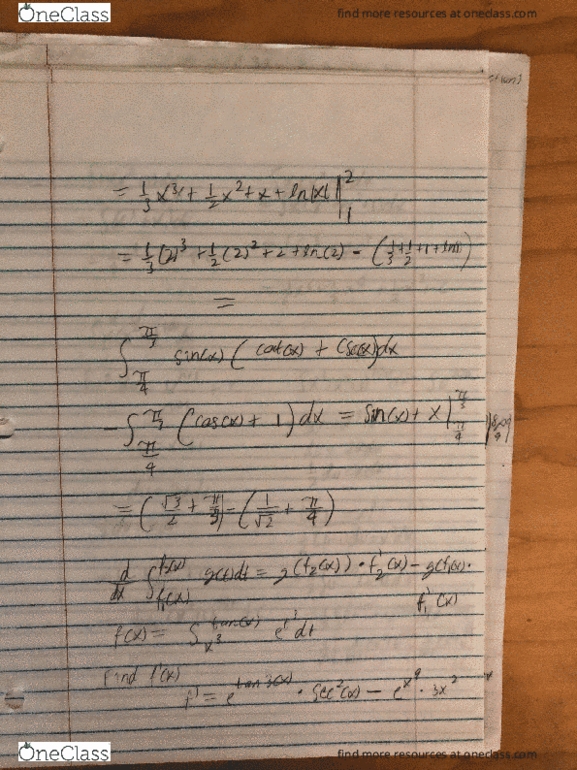 OneClass
find more resources at oneclass.com
= 1/3 x³ + 1/2 x² + x + ln|x| |₁²
= 1/3 (2)³ + 1/2 (2)² + 2 + ln(2) - (1/3 + 1/2 + 1 + ln1)
=
∫_{π/4}^{π/3} sin(x) ( cot(x) + csc(x) dx
- ∫_{π/4}^{π/3} (cos(x) + 1) dx = sin(x) + x |_{π/4}^{π/3}
= ( √3/2 + π/3 ) - ( 1/√2 + π/4 )
d/dx ∫_{f₁(x)}^{f₂(x)} g(t)dt = g(f₂(x)) · f₂'(x) - g(f₁(x)) ·
f₁'(x)
f(x) = ∫_{x³}^{tan(x)} dt
Find f'(x)
f' = e^{tan³(x)} · sec²(x) - e^{x⁹} · 3x²
OneClass
find more resources at oneclass.com